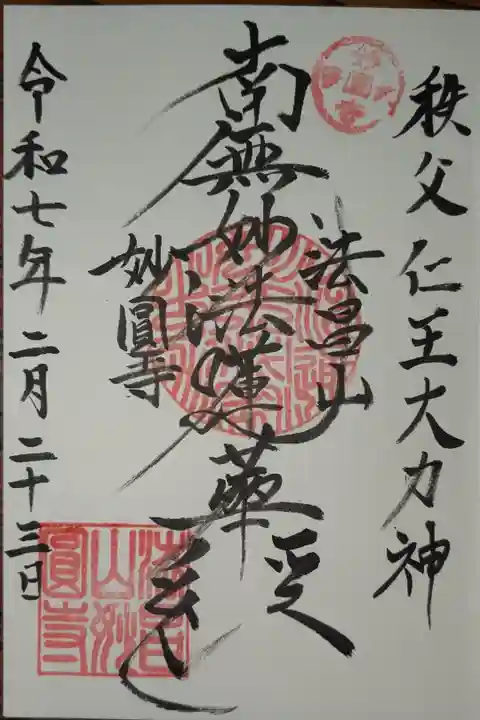 秩父仁王大力神
法昌山
南無妙法蓮華経
妙圓寺
令和七年二月二十三日
法昌
山妙
圓寺